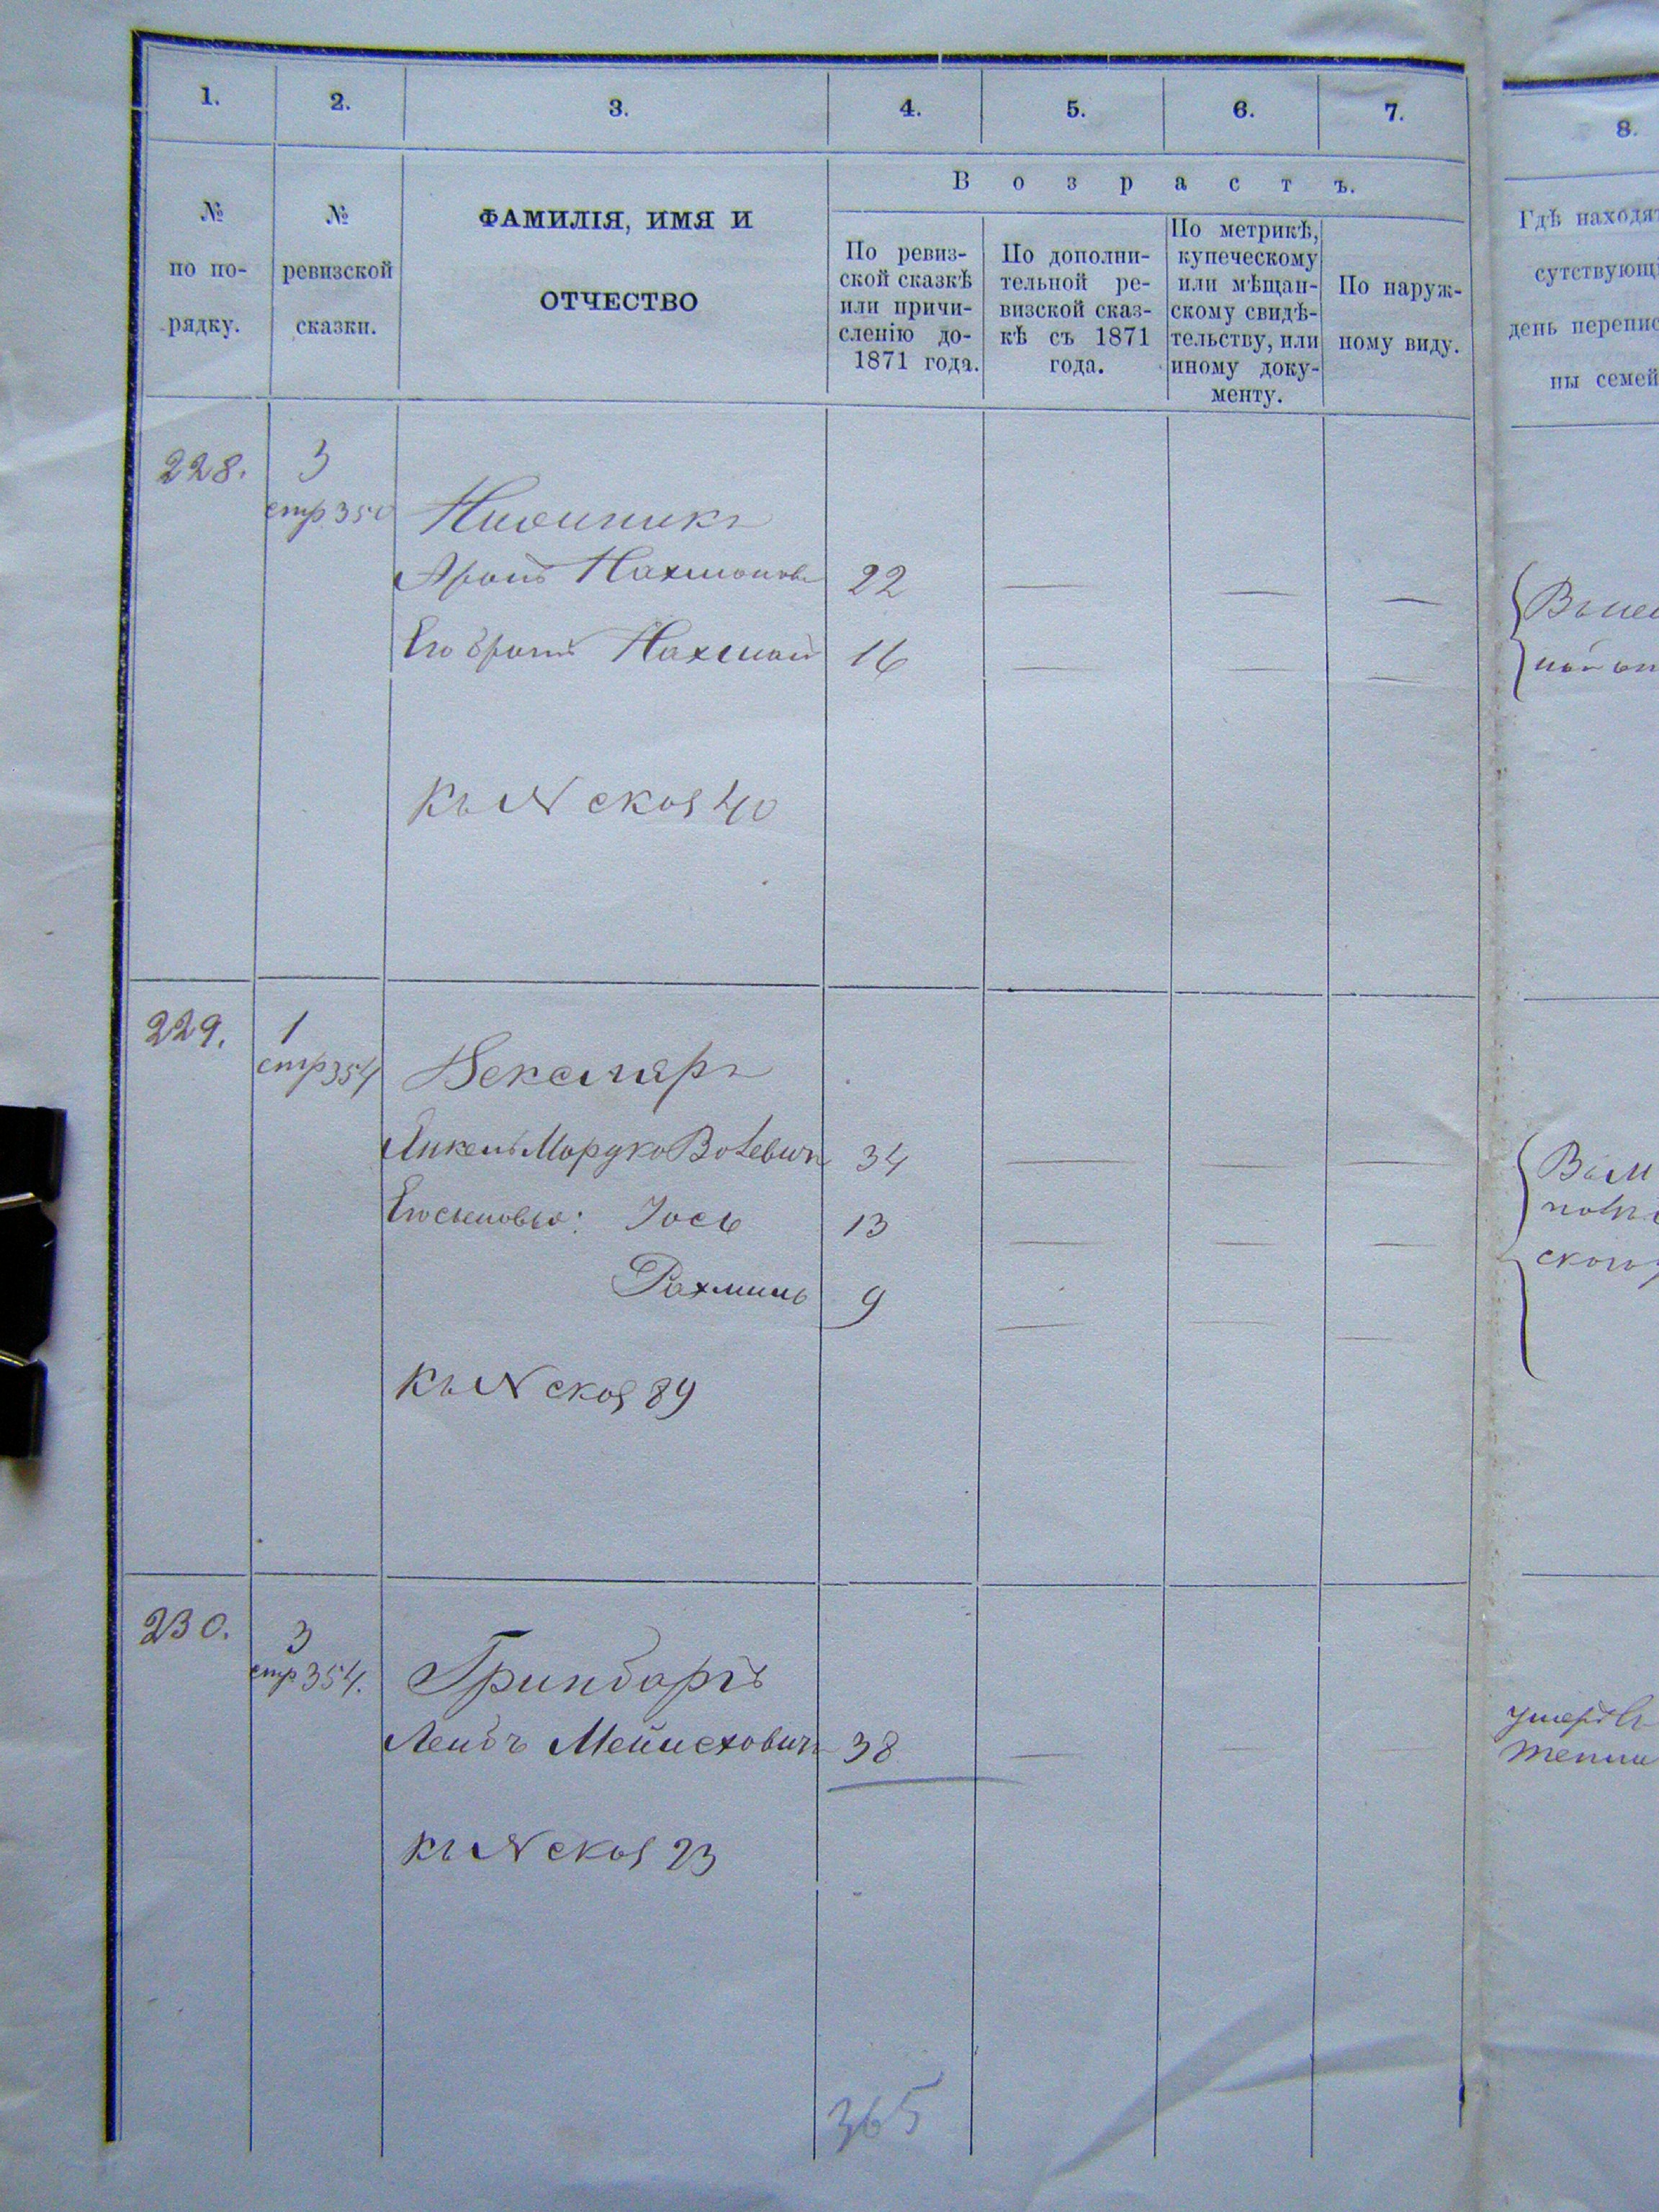 1. 2. 3. 4. 5. 6. 7. 8.
№ по по-рядку.
№ ревизской сказки.
ФАМИЛІЯ, ИМЯ И
ОТЧЕСТВО
Возрастъ.
По ревиз-
ской сказкѣ
или причи-
сленію до-
1871 года.
По дополни-
тельной ре-
визской сказ-
кѣ съ 1871
года.
По метрикѣ,
купеческому
или мѣщан-
скому свидѣ-
тельству, или
иному доку-
менту.
По наруж-
ному виду.
Гдѣ находя
сутствующ
день перепис
ны семей
228. 3
стр 350
Аронъ Нахмановъ 22 — — —
Его братъ Нахманъ 16 — — —
Къ № скоз 40
229. 1
стр 354 Вексляръ
Янкель Мордко Вольвичъ 34 — — —
Его сыновья: Іось 13 — — —
Рахмиль 9 — — —
Къ № скоз 89
230. 3
стр 354. Гринбаргъ
Лейбъ Мейлеховичъ 38 — — —
Къ № скоз 23
365